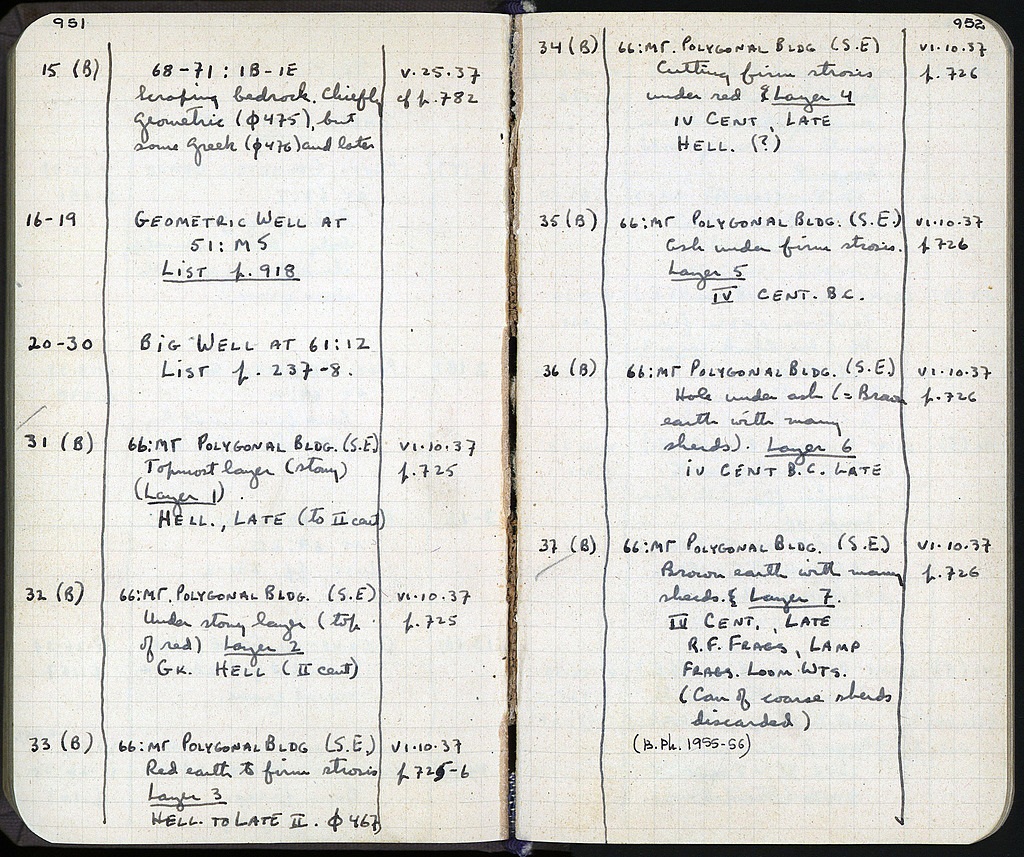 951
15 (B) 68-71 : 1B-1E V.25.37
Scraping bedrock. Chiefly cf p. 782
Geometric (ϕ475), but
some Greek (ϕ476) and later
16-19 GEOMETRIC WELL AT
51: M5
LIST p. 918
20-30 BIG WELL AT 61:12
LIST p. 237-8.
31 (B) 66:MT POLYGONAL BLDG. (S.E) VI.10.37
Topmost layer (stony) p. 725
(Layer 1).
HELL., LATE (to II cent)
32 (B) 66:MT. POLYGONAL BLDG. (S.E) VI.10.37
Under stony layer (top p. 725
of red) Layer 2
GK. HELL (II cent)
33 (B) 66:MT POLYGONAL BLDG (S.E.) VI.10.37
Red earth to firm strosis p. 725-6
Layer 3
HELL. TO LATE II. ϕ 467
952
34 (B) 66:MT. POLYGONAL BLDG (S.E) VI.10.37
Cutting firm strosis p. 726
under red & Layer 4
IV CENT, LATE
HELL. (?)
35 (B) 66:MT POLYGONAL BLDG. (S.E.) VI.10.37
Ash under firm strosis. p. 726
Layer 5
IV CENT. B.C.
36 (B) 66:MT POLYGONAL BLDG. (S.E.) VI.10.37
Hole under ash (= Brown p. 726
earth with many
sherds). Layer 6
IV CENT B.C. LATE
37 (B) 66:MT POLYGONAL BLDG. (S.E.) VI.10.37
Brown earth with many p. 726
sherds. & Layer 7.
IV CENT., LATE
R.F. FRAGS, LAMP
FRAGS. LOOM WTS.
(Can of coarse sherds
discarded)
(B. Ph. 1955-56)